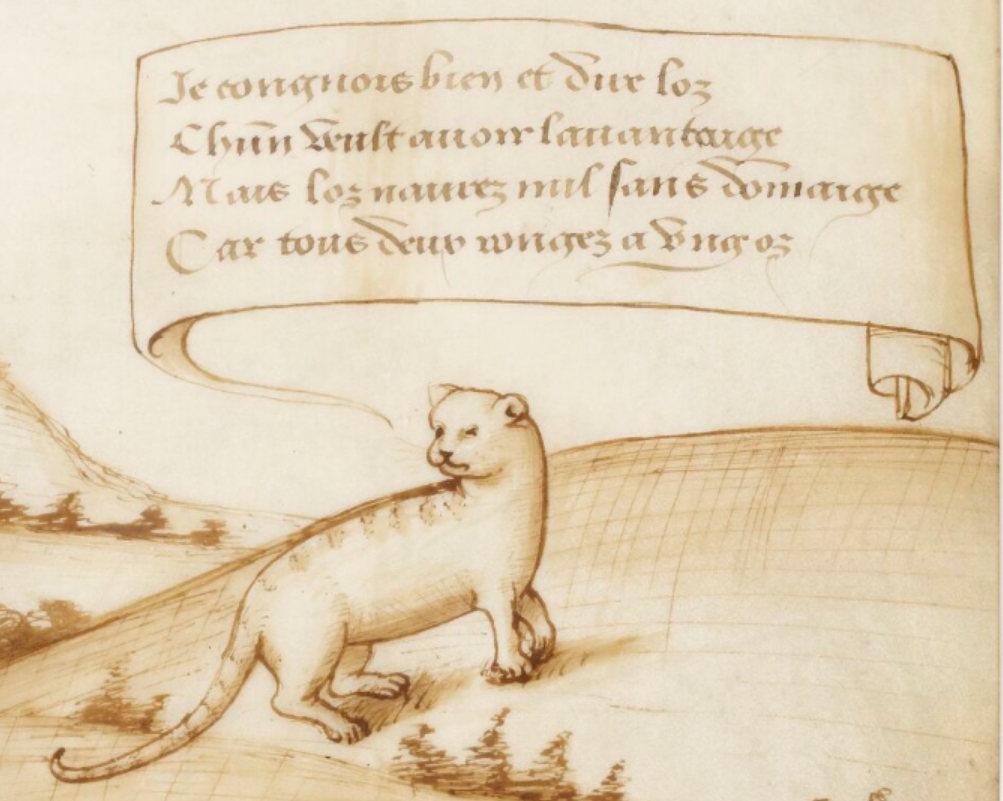 Je congnois bien et dur loz
Chũn veult avoir lavantaige
Mais loz naurez nul sans dõmaige
Car tous deux rongez a ung oz